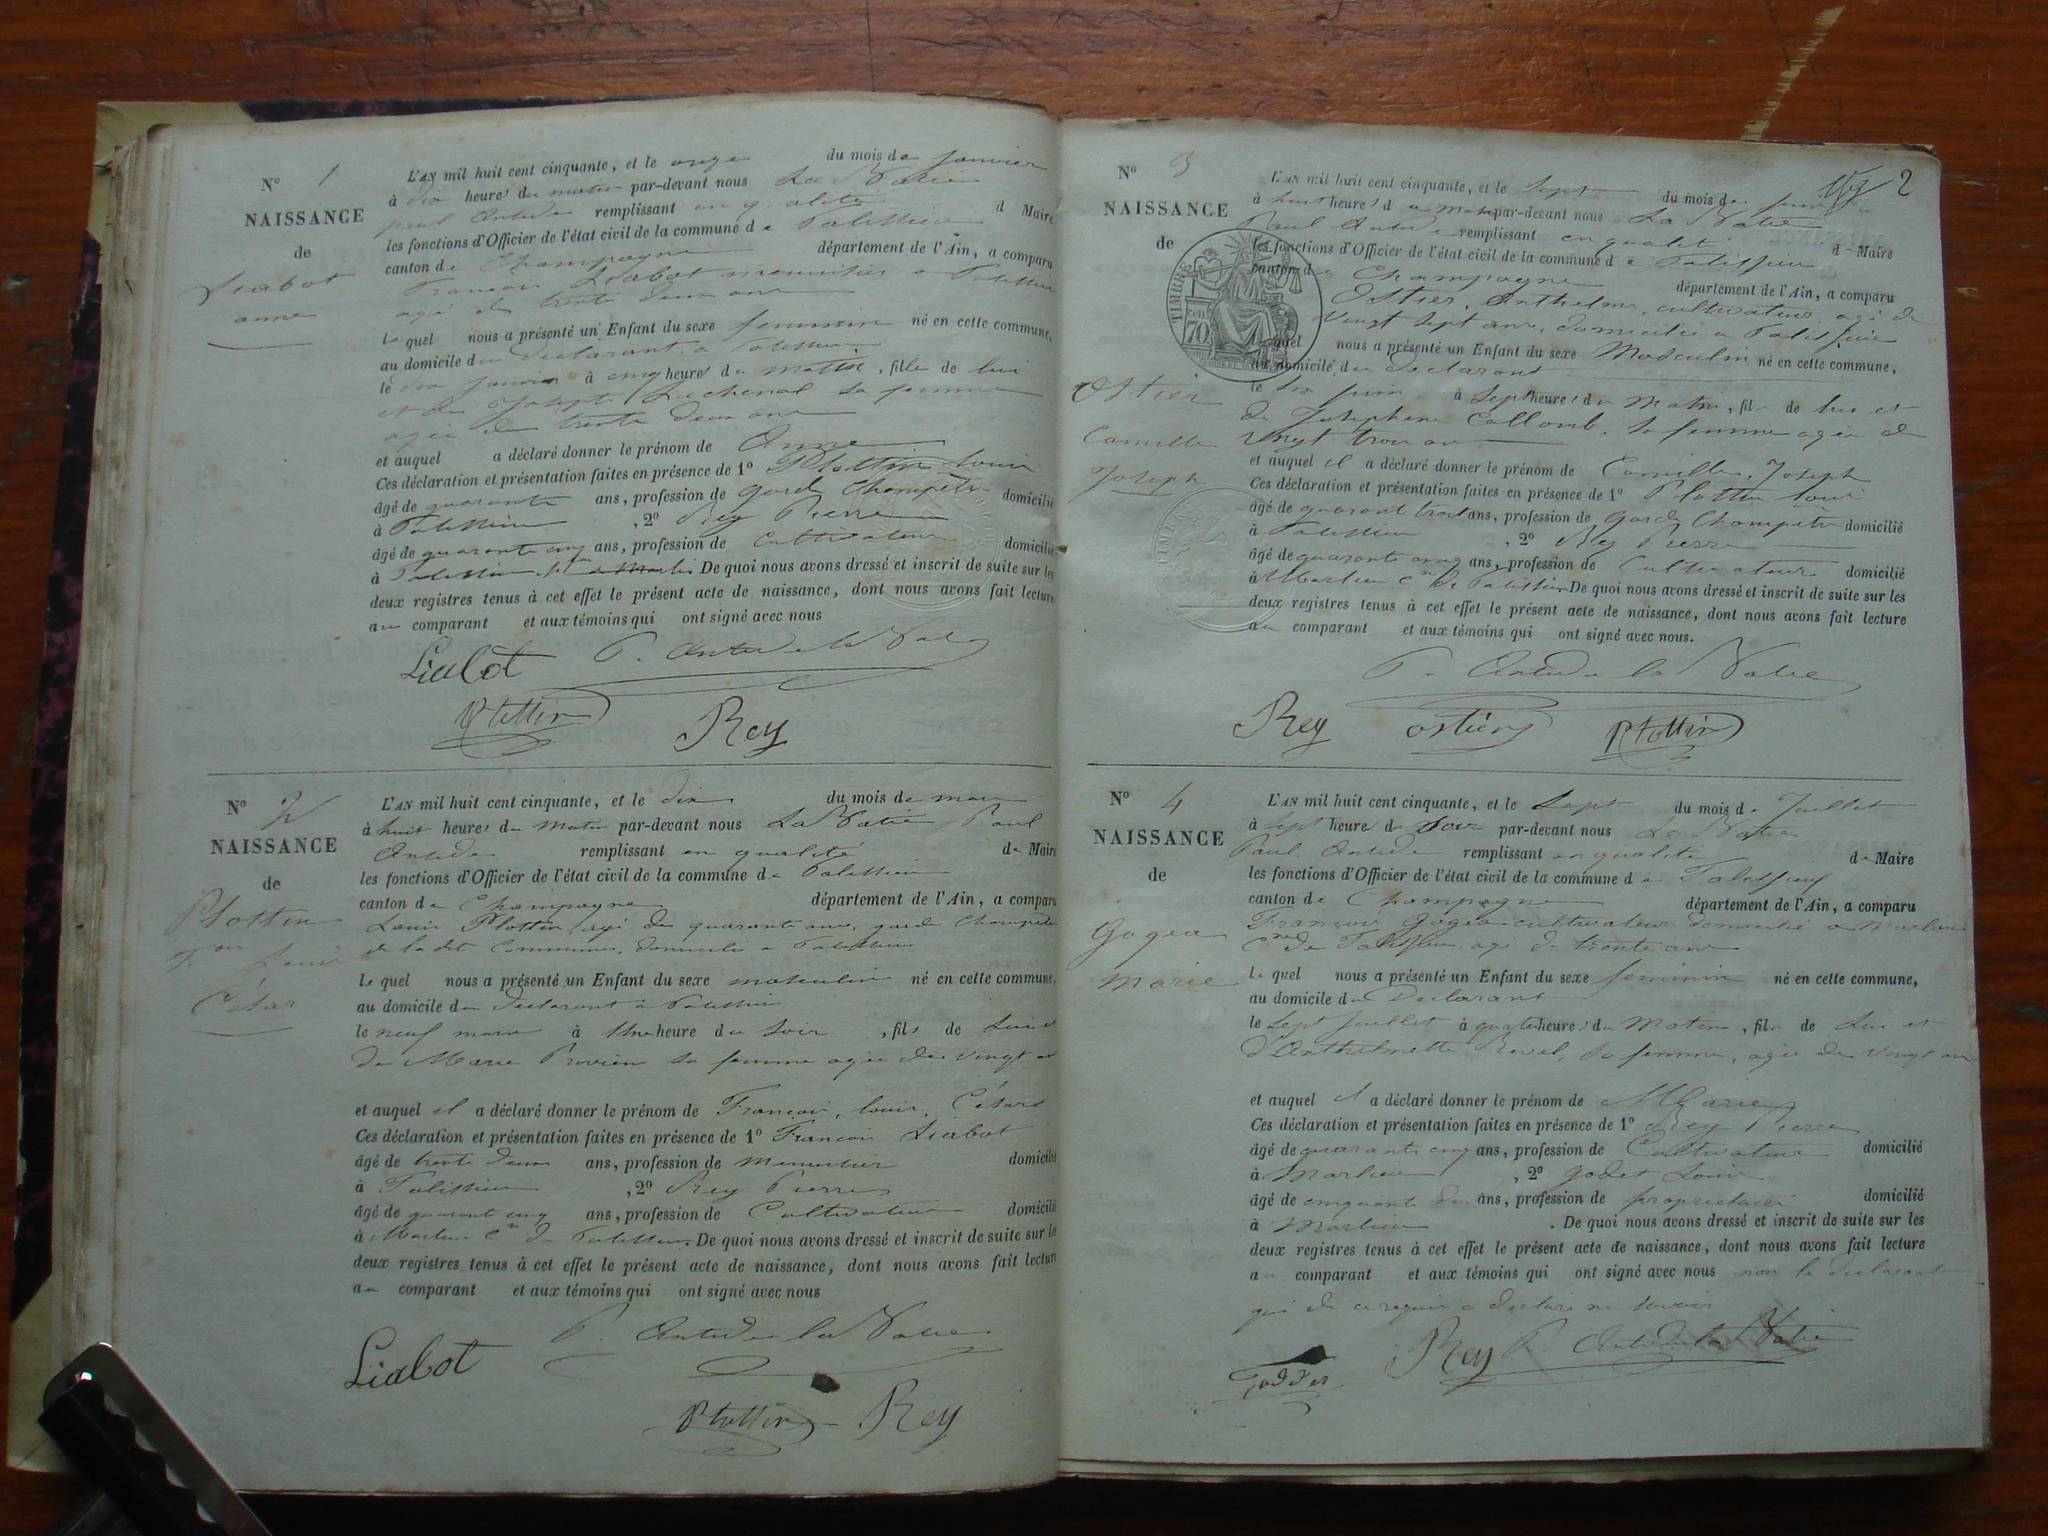 N° 1
NAISSANCE
de
Liabot
anne
L'AN mil huit cent cinquante, et le onze du mois de janvier
à dix heures du matin par-devant nous La Batie
paul Antide remplissant en qualité d Maire
les fonctions d'Officier de l'état civil de la commune de Talissieu
canton de Champagne département de l'Ain, a comparu
François Liabot menuisier a Talissieu
agé de trente deux ans
Lequel nous a présenté un Enfant du sexe feminin né en cette commune,
au domicile du declarant a Talissieu
le dix janvier à cinq heures du matin, fille de lui
et de Josephte Luchenal sa femme
agée de trente deux ans
et auquel a déclaré donner le prénom de Anne
Ces déclaration et présentation faites en présence de 1° Plottin louis
âgé de quarante ans, profession de garde Champetre domicilié
à Talissieu, 2° Rey Pierre
âgé de quarante cinq ans, profession de Cultivateur domicilié
à Talissieu De quoi nous avons dressé et inscrit de suite sur les
deux registres tenus à cet effet le présent acte de naissance, dont nous avons fait lecture
au comparant et aux témoins qui ont signé avec nous
Liabot P. Antide la Batie
Plottin Rey
N° 2
NAISSANCE
de
Plottin
F.on Louis
César
L'AN mil huit cent cinquante, et le dix du mois de mars
à huit heures du matin par-devant nous La Batie Paul
Antide remplissant en qualité de Maire
les fonctions d'Officier de l'état civil de la commune de Talissieu
canton de Champagne département de l'Ain, a comparu
Louis Plottin, agé de quarante ans, garde Champetre
de la dite Commune, domicilié a Talissieu
Lequel nous a présenté un Enfant du sexe masculin né en cette commune,
au domicile du declarant à Talissieu
le neuf mars à Une heure du soir, fils de Lui et
de Marie Provien sa femme agée de vingt ans
et auquel il a déclaré donner le prénom de François, louis, César
Ces déclaration et présentation faites en présence de 1° François Liabot
âgé de trente deux ans, profession de menuisier domicilié
à Talissieu, 2° Rey Pierre
âgé de quarante cinq ans, profession de Cultivateur domicilié
à Marlieu Cne de Talissieu. De quoi nous avons dressé et inscrit de suite sur les
deux registres tenus à cet effet le présent acte de naissance, dont nous avons fait lecture
au comparant et aux témoins qui ont signé avec nous
Liabot P. Antide la Batie
Plottin Rey
2
N° 3
NAISSANCE
de
Ostier
Camille
Joseph
L'AN mil huit cent cinquante, et le Sept du mois de juin
à huit heures d u matin par-devant nous La Batie
Paul Antide remplissant en qualité d Maire
les fonctions d'Officier de l'état civil de la commune de Talissieu
canton de Champagne département de l'Ain, a comparu
Ostier, Anthelme, cultivateur, agé de
vingt sept ans, domicilié a Talissieu
Lequel nous a présenté un Enfant du sexe Masculin né en cette commune,
au domicile du declarant
le six juin à Sept heures du Matin, fils de lui et
de Josephine Collomb, sa femme agée de
vingt trois ans
et auquel il a déclaré donner le prénom de Camille, Joseph
Ces déclaration et présentation faites en présence de 1° Plottin louis
âgé de quarante trois ans, profession de garde Champetre domicilié
à Talissieu, 2° Rey Pierre
âgé de quarante cinq ans, profession de Cultivateur domicilié
à Marlieu Cne de Talissieu De quoi nous avons dressé et inscrit de suite sur les
deux registres tenus à cet effet le présent acte de naissance, dont nous avons fait lecture
au comparant et aux témoins qui ont signé avec nous.
P. Antide la Batie
Rey ostier Plottin
TIMBRE
cen 70
N° 4
NAISSANCE
de
Gogea
Marie
L'AN mil huit cent cinquante, et le Sept du mois de Juillet
à sept heures du Soir par-devant nous La Batie
Paul Antide remplissant en qualité de Maire
les fonctions d'Officier de l'état civil de la commune de Talissieu
canton de Champagne département de l'Ain, a comparu
François Gogea cultivateur domicilié a Marlieu
Cne de Talissieu, agé de trente ans
Lequel nous a présenté un Enfant du sexe feminin né en cette commune,
au domicile du Declarant
le Sept Juillet à quatre heures du Matin, fille de Lui et
d'Anthelmette Revel, sa femme, agée de vingt ans
et auquel il a déclaré donner le prénom de Marie
Ces déclaration et présentation faites en présence de 1° Rey Pierre
âgé de quarante cinq ans, profession de Cultivateur domicilié
à Marlieu, 2° Godet Louis
âgé de cinquante deux ans, profession de proprietaire domicilié
à Marlieu. De quoi nous avons dressé et inscrit de suite sur les
deux registres tenus à cet effet le présent acte de naissance, dont nous avons fait lecture
au comparant et aux témoins qui ont signé avec nous non le declarant
qui de ce requis a declaré ne savoir
Rey P. Antide la Batie